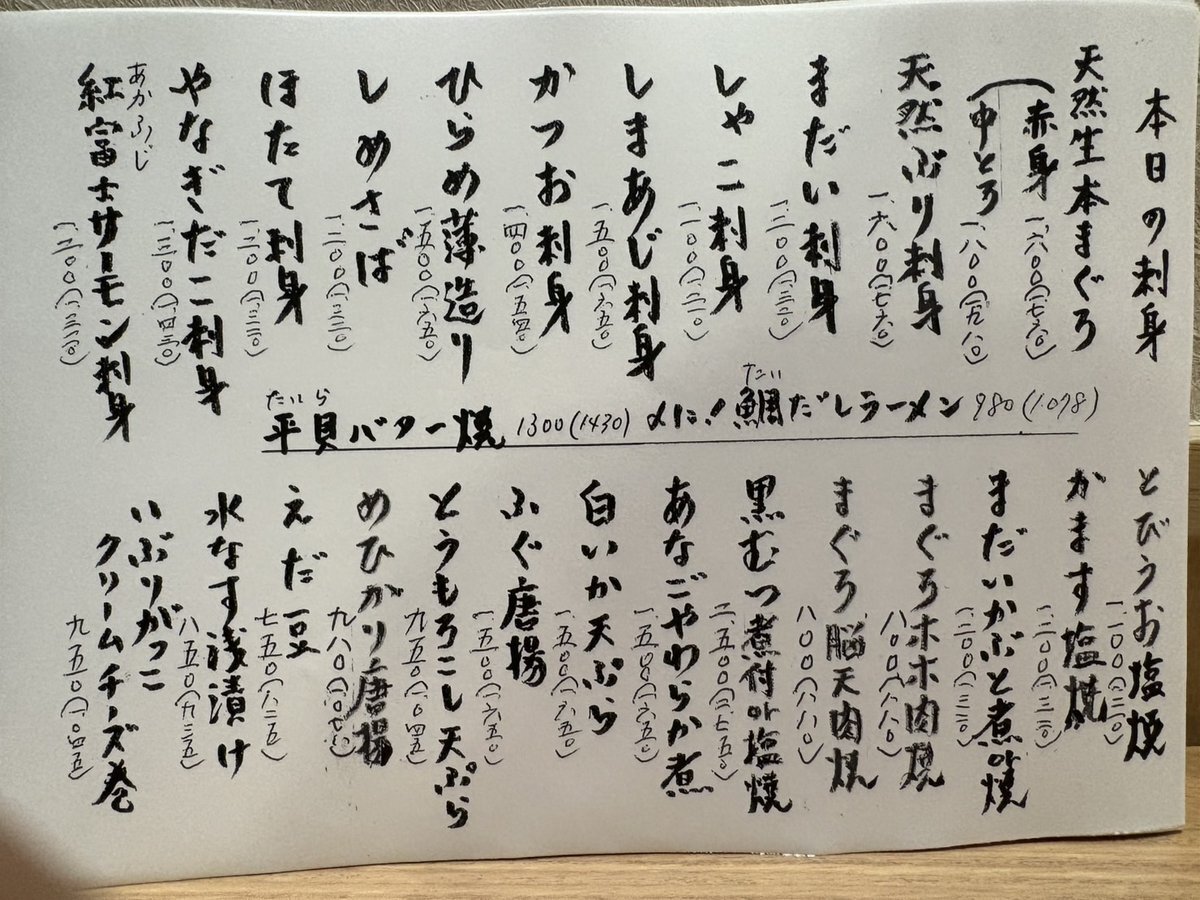 本日の刺身
天然生本まぐろ
赤身 一、六〇〇(一、七六〇)
中とろ 一、八〇〇(一、九八〇)
天然ぶり刺身 一、六〇〇(一、七六〇)
まだい刺身 一、二〇〇(一、三二〇)
しゃこ刺身 一、一〇〇(一、二一〇)
しまあじ刺身 一、五〇〇(一、六五〇)
かつお刺身 一、四〇〇(一、五四〇)
ひらめ薄造り 一、五〇〇(一、六五〇)
しめさば 一、二〇〇(一、三二〇)
ほたて刺身 一、二〇〇(一、三二〇)
やなぎだこ刺身 一、三〇〇(一、四三〇)
あかふじ
紅富士サーモン刺身 一、二〇〇(一、三二〇)
たいら たい
平貝バター焼 1300(1430) 〆に!鯛だしラーメン 980(1078)
とびうお塩焼 一、一〇〇(一、二一〇)
かます塩焼 一、二〇〇(一、三二〇)
まだいかぶと煮or焼 一、二〇〇(一、三二〇)
まぐろホホ肉焼 八〇〇(八八〇)
まぐろ脳天肉焼 八〇〇(八八〇)
黒むつ煮付or塩焼 二、五〇〇(二、七五〇)
あなごやわらか煮 一、五〇〇(一、六五〇)
白いか天ぷら 一、五〇〇(一、六五〇)
ふぐ唐揚 一、五〇〇(一、六五〇)
とうもろこし天ぷら 九五〇(一、〇四五)
めひかり唐揚 九八〇(一、〇七八)
えだ豆 七五〇(八二五)
水なす浅漬け 八五〇(九三五)
いぶりがっこ
クリームチーズ巻 九五〇(一、〇四五)